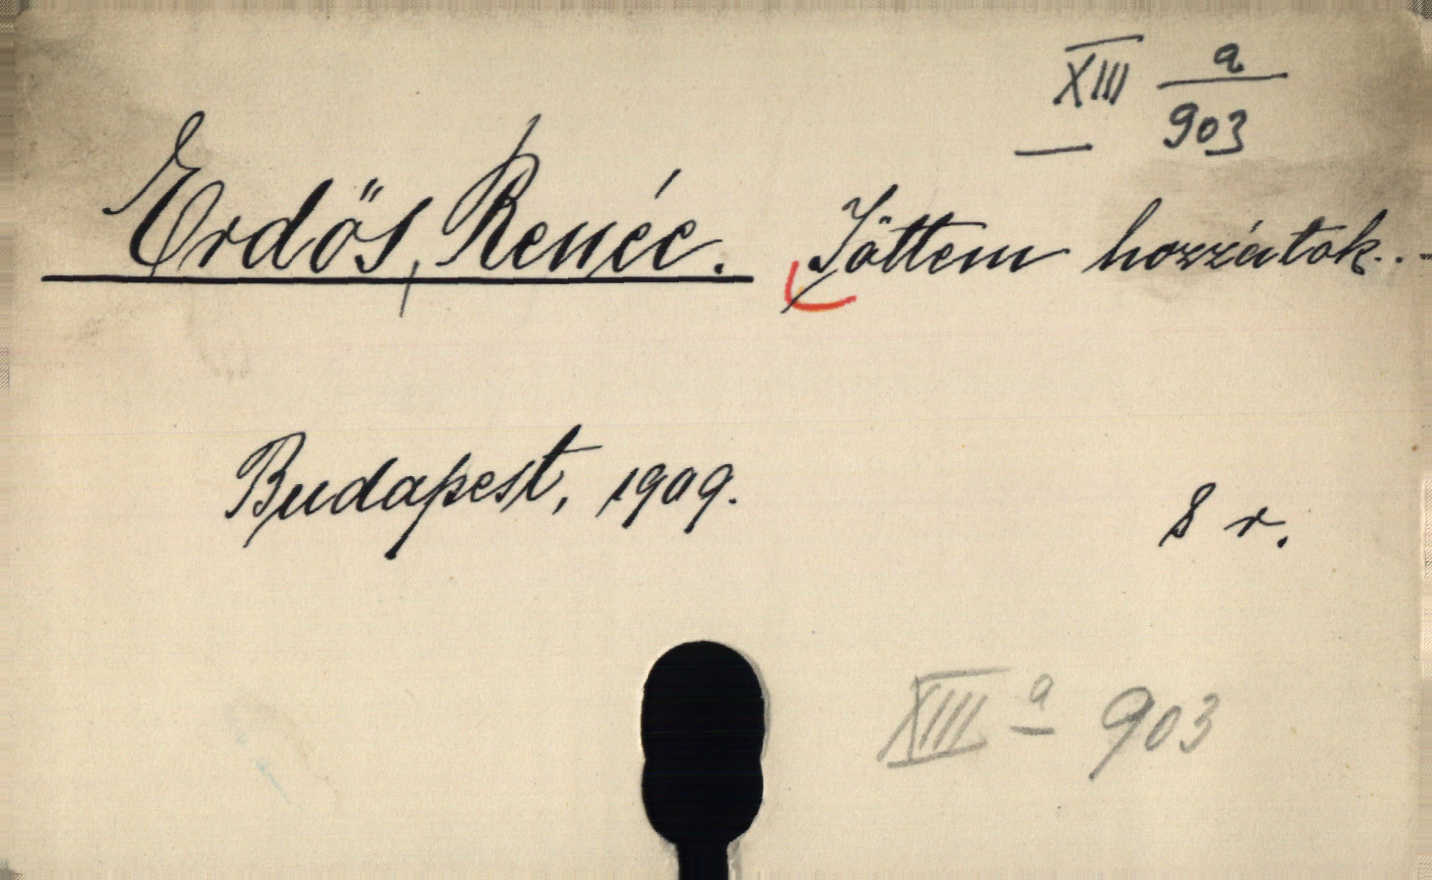 XIII a/903
Erdős, Renée. Jöttem hozzátok..-
Budapest, 1909.
8 r.
XIII a 903